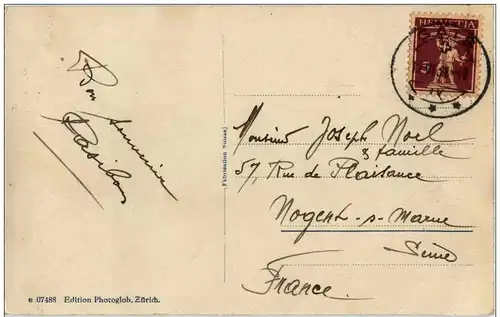 HELVETIA
Bon
Souvenir
Monsieur Joseph Noel
& famille
57, Rue de Plaisance
Nogent-s-Marne
Seine
France
(Fabrication Suisse)
e 07488 Edition Photoglob, Zürich.